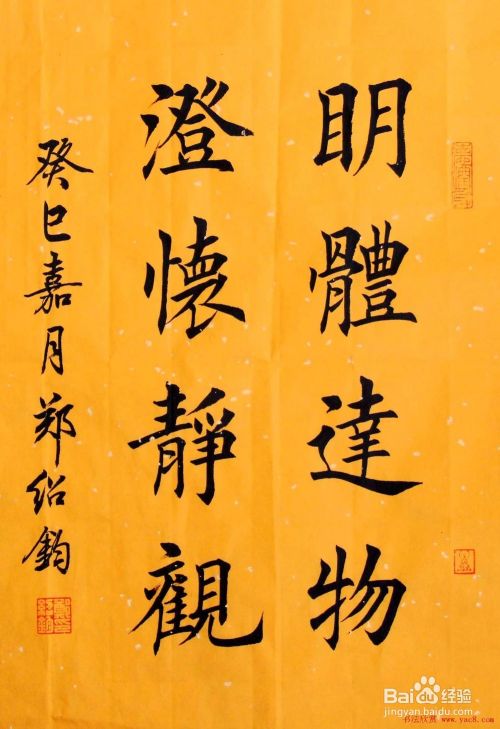 明體達物
澄懷靜觀
癸巳嘉月郑绍鈞
Bai du 经验
jingyan.baidu.com
书法欣赏 www.yac8.com